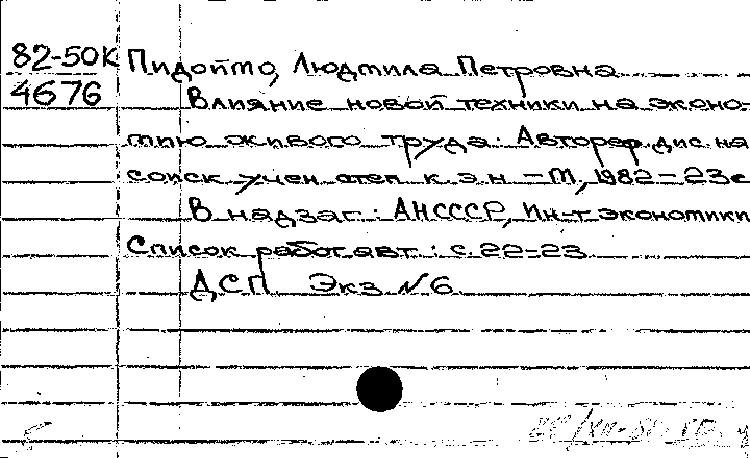 82-50К Пидойто, Людмила Петровна
4676 Влияние новой техники на эконо-
мию живого труда: Автореф. дис. на
соиск учен степ к. э. н – М, 1982 – 23с
В надзаг.: АН СССР, Ин-т экономики
Список работ авт.: с. 22-23
ДСП Экз № 6